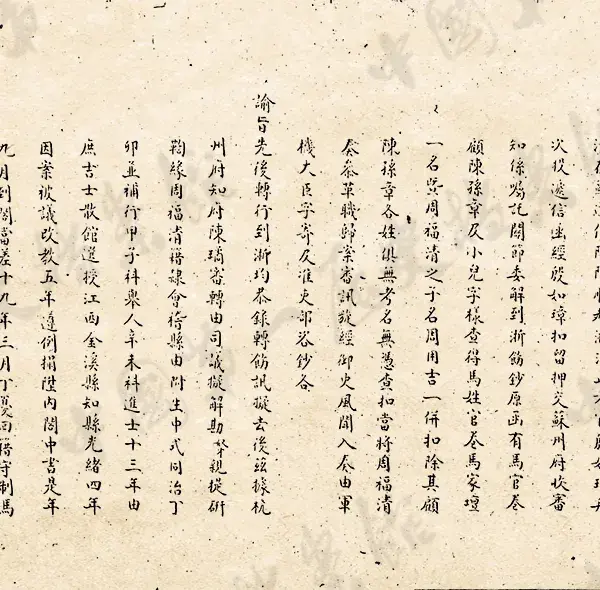 次投遞信函經殷如璋扣留押交蘇州府收審
知係囑託關節委解到浙飭鈔原函有馬官卷
顧陳孫章及小兒字樣查得馬姓官卷馬家壇
一名與周福清之子名周用吉一併扣除其顧
陳孫章各姓俱無考名無憑查扣當將周福清
奏參革職歸案審訊旋經御史風聞入奏由軍
機大臣字寄及准吏部咨鈔各
諭旨先後轉行到浙均恭錄轉飭訊擬去後茲據杭
州府知府陳璚審轉由司議擬解勘親提研
鞫緣周福清籍隸會稽縣由附生中式同治丁
卯並補行甲子科舉人辛未科進士十三年由
庶吉士散館選授江西金溪縣知縣光緒四年
因案被議改教五年遵例捐陞內閣中書是年
九月到閣當差十九年三月丁憂回籍守制馬